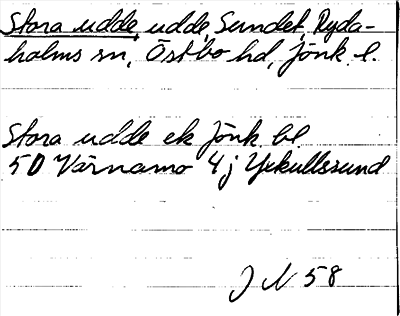 Stora udde, udde, Sundet, Ryda-
holms sn, Östbo hd, Jönk. l.
Stora udde ek Jönk. bl.
5D Värnamo 4j Yxkullssund
J N 58